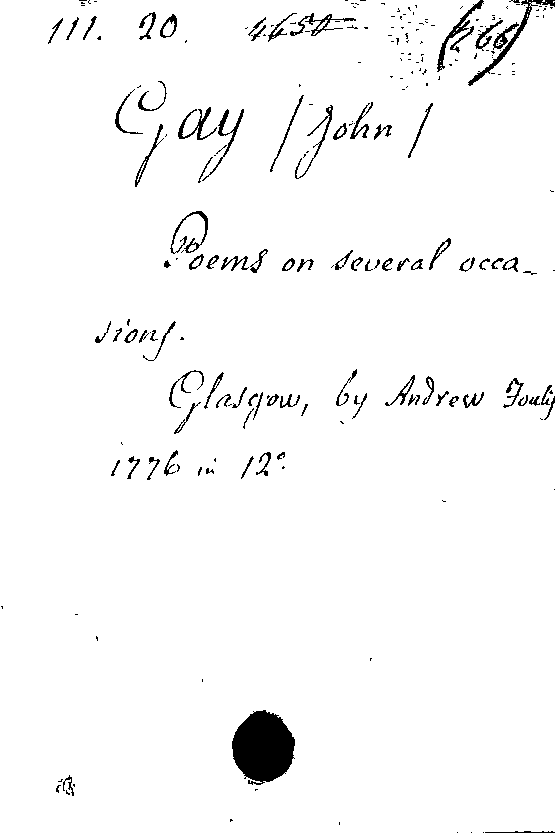 111. 20. 4650 (266)
Gay /John/
Poems on several occa-
sions.
Glasgow, by Andrew Foulis
1776 in 12°.